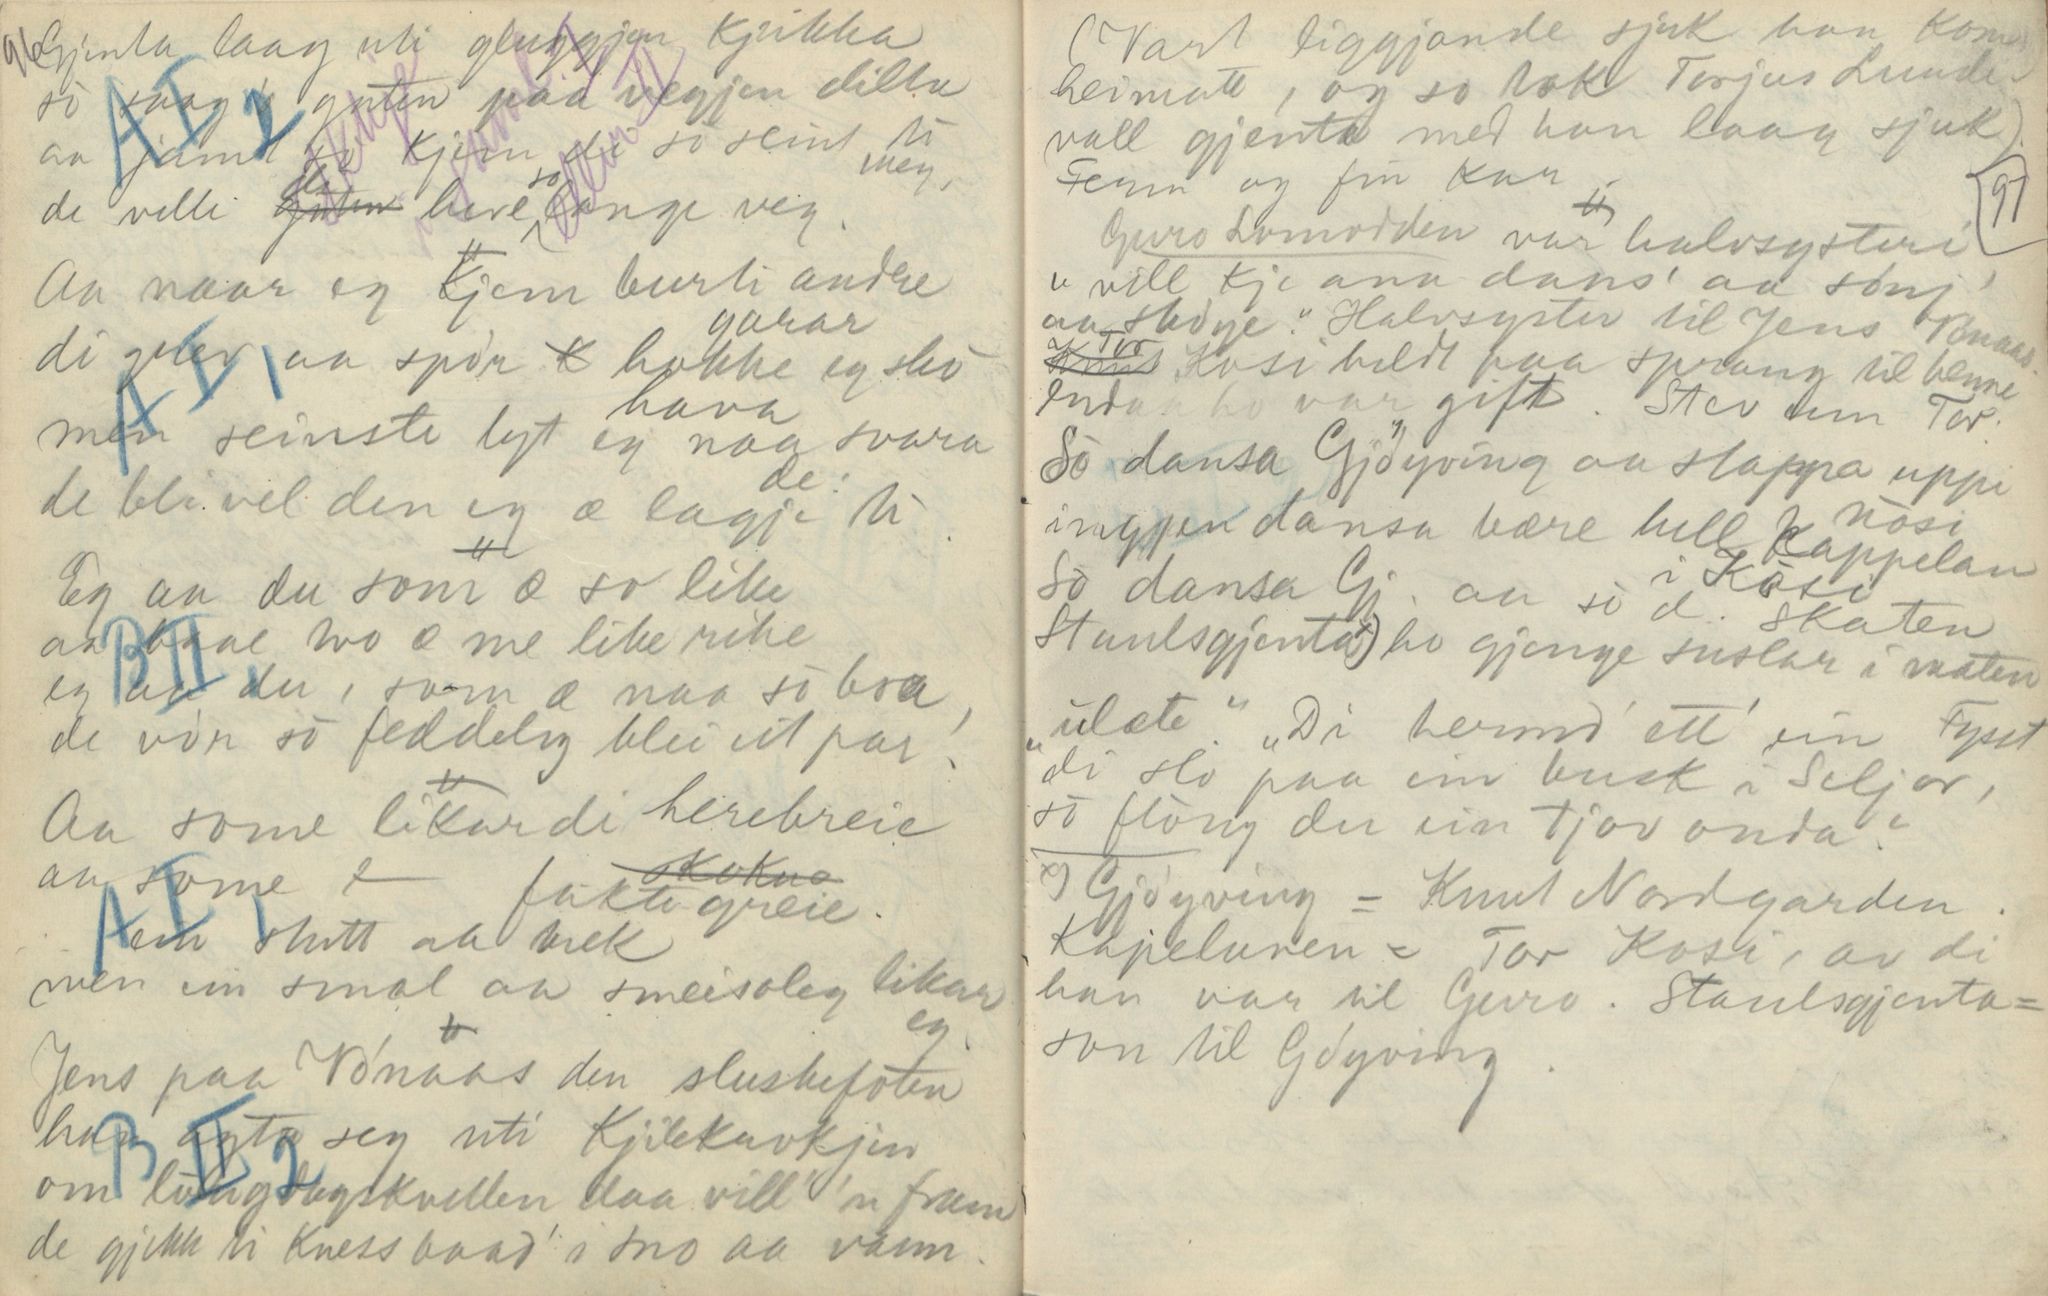 96
Gjenta laag uti gluggjen kjikka
so saag o guten paa vegjen dilta
aa jamt so kjem du so seint ti
meg,
de velli du guten heve so lange veg.
Aa naar eg kjem burti andre
garar
di glor aa spör hokke eg skò
men seinste lyt eg naa svara
hava
de bli vel den eg æ lagje ti
de.
Eg aa du som æ so like
aa baae tvo æ me like rike
eg aa du, som æ naa sò bra,
de vór sò feddeleg blei eit par!
Aa some likar di herebreie
aa some
skokne
fukte greie.
ein stutt aa trek
men ein smal aa smeisoleg likar
eg
Jens paa Vónaas den sluskefoten
han agta seg uti Kjilekurkjen
om laugdagskvellen daa vill' 'n fram
de gjekk ti kness baad' i sno aa vatn.
(Vart liggjande sjuk han kom
heimatt, og so tok Torjus Lunde-
vall gjenta med han laag sjuk).
Fenn og fin kar.
97
Guro Lomodden var halvsysteri
"vill kje ana dans' aa sònj'
aa skòge." Halvsyster til Jens Vònaas.
Knut Tor Kosi heldt paa sprang til henne
Endaa ho var gift. Stev um Tor.
Sò dansa Gjöyving aa slappa uppi
nòsi
inggjen dansa bære hell kappelan
i Kòsi
Sò dansa Gj. aa sò d. Skaten
Staulsgjenta x) ho gjenge suslar i maten
"ulæte." "Di hermd' ett' ein Fyst
di slo paa ein busk i Seljor,
sò flòug der ein tjov onda."
x) Gjöyving = Knut Nordgarden.
Kapelanen = Tor Kosi, av di
han var til Guro. Staulsgjenta =
son til Göyving.